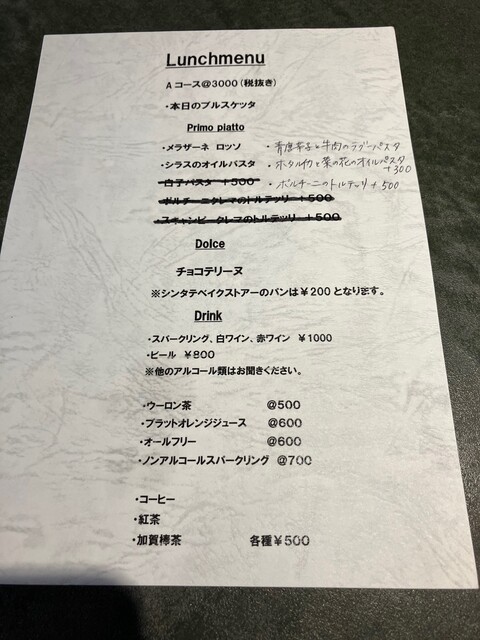 Lunchmenu
Aコース@3000(税抜き)
・本日のブルスケッタ
Primo piatto
・メラザーネ ロッソ ・青唐辛子と牛肉のラグーパスタ
・シラスのオイルパスタ ・ホタルイカと菜の花のオイルパスタ
+300
白子パスタ +500 ・ポルチーニのトルテッリ +500
・ポルチーニクレマのトルテッリ +500
・スキャンピークレマのトルテッリ +500
Dolce
チョコテリーヌ
※シンタテベイクストアーのパンは¥200となります。
Drink
・スパークリング、白ワイン、赤ワイン ¥1000
・ビール ¥800
※他のアルコール類はお聞きください。
・ウーロン茶 @500
・ブラットオレンジジュース @600
・オールフリー @600
・ノンアルコールスパークリング @700
・コーヒー
・紅茶
・加賀棒茶 各種¥500